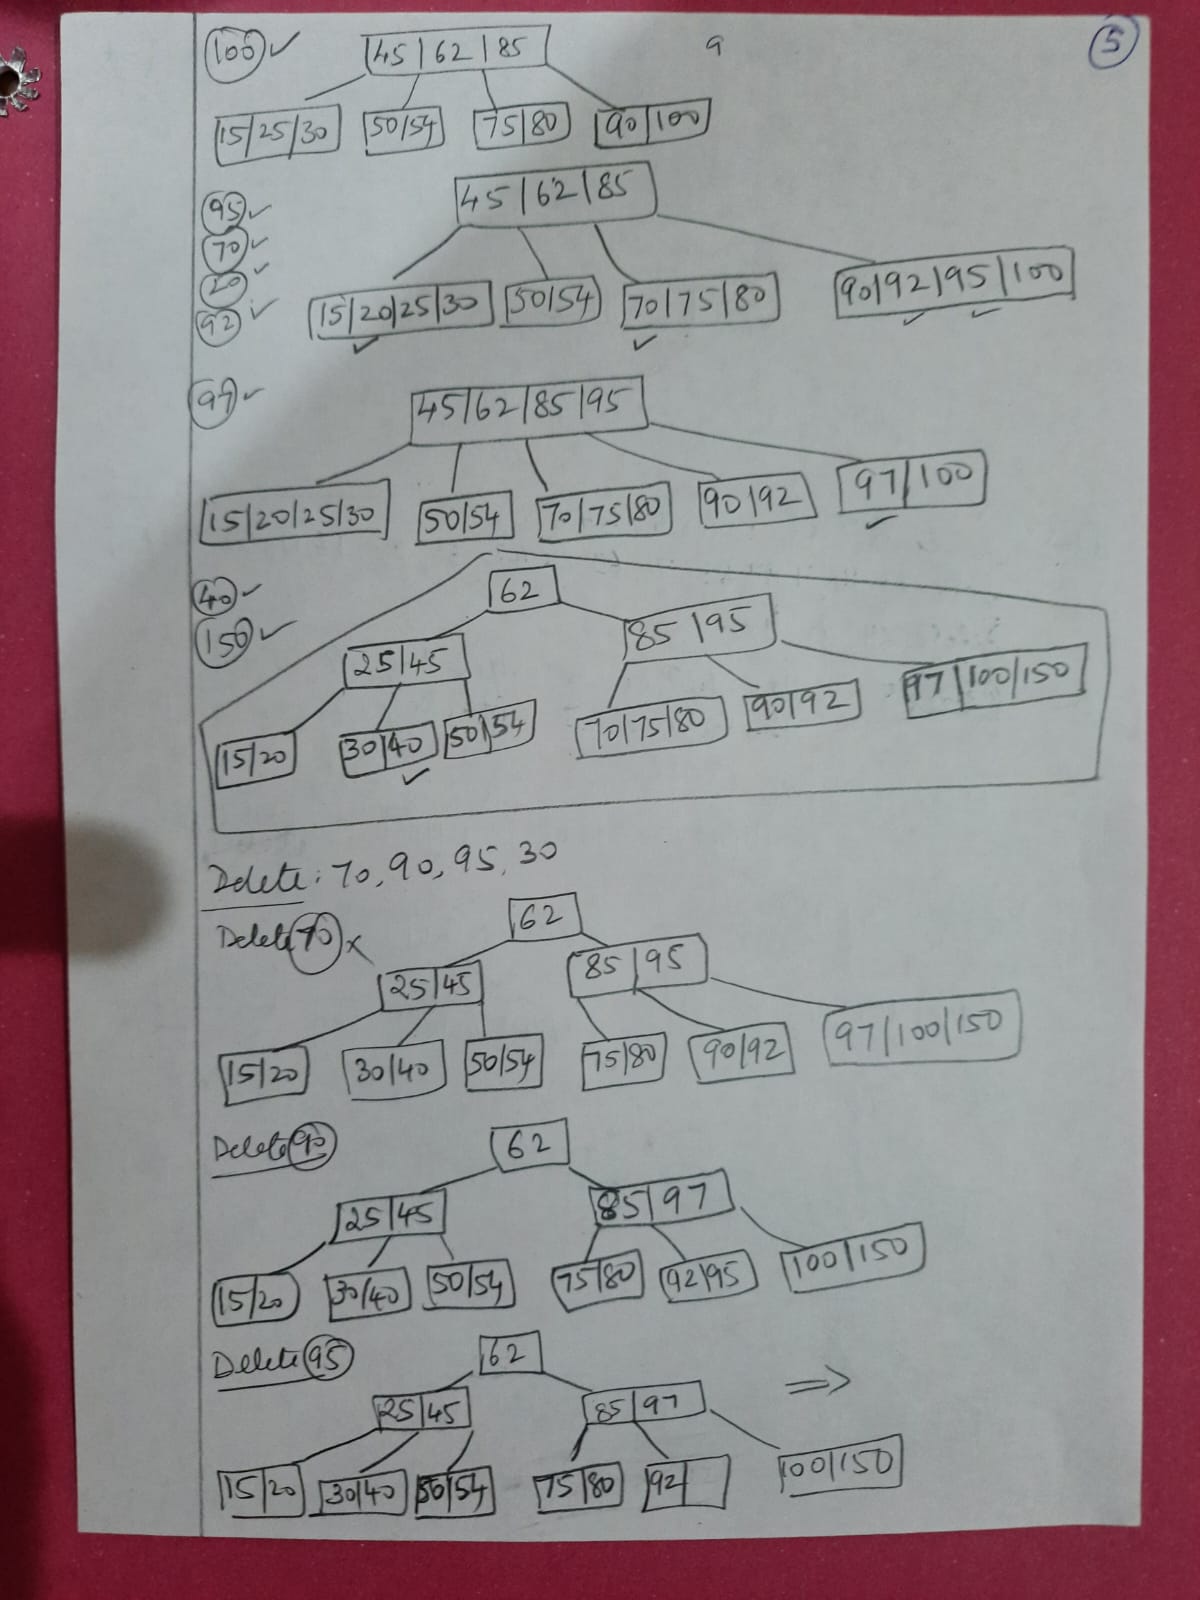 5
100 ✓ 45|62|85 9
15|25|30 50|54 75|80 90|100
95 ✓ 45|62|85
70 ✓
20 ✓
92 ✓ 15|20|25|30 50|54 70|75|80 90|92|95|100
97 ✓ 45|62|85|95
15|20|25|30 50|54 70|75|80 90|92 97|100
40 ✓ 62
150 ✓ 25|45 85|95
15|20 30|40 50|54 70|75|80 90|92 97|100|150
Delete: 70, 90, 95, 30
Delete 70 x 62
25|45 85|95
15|20 30|40 50|54 75|80 90|92 97|100|150
Delete 90 62
25|45 85|97
15|20 30|40 50|54 75|80 92|95 100|150
Delete 95 62
25|45 85|97 ⇒
15|20 30|40 50|54 75|80 92| 100|150